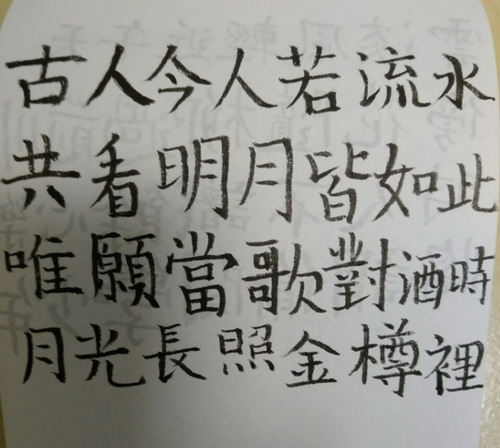 古人今人若流水
共看明月皆如此
唯願當歌對酒時
月光長照金樽裡